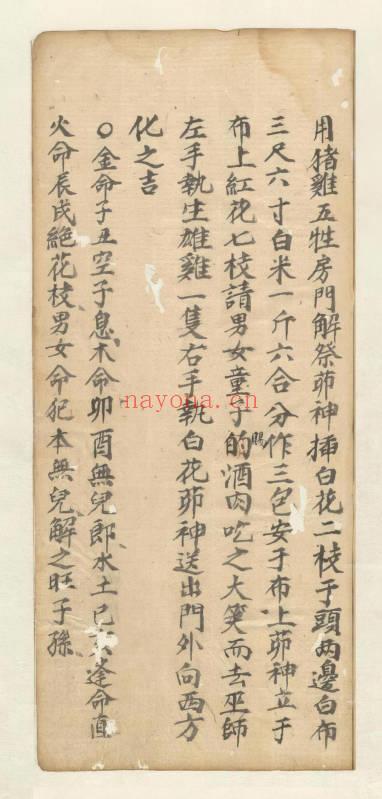 用猪雞五牲房門解祭茆神揷白花二枝于頭两邊白布
三尺六寸白米一斤六合分作三包安于布上茆神立于
布上紅花七枝請男女童子的賜酒肉吃之大笑而去巫師
左手執生雄雞一隻右手執白花茆神送出門外向西方
化之吉
〇金命子丑空子息木命卯酉無兒郎水土巳逢命直
火命辰戌絕花枝男女命犯本無兒解之旺子孫
nayona.cn